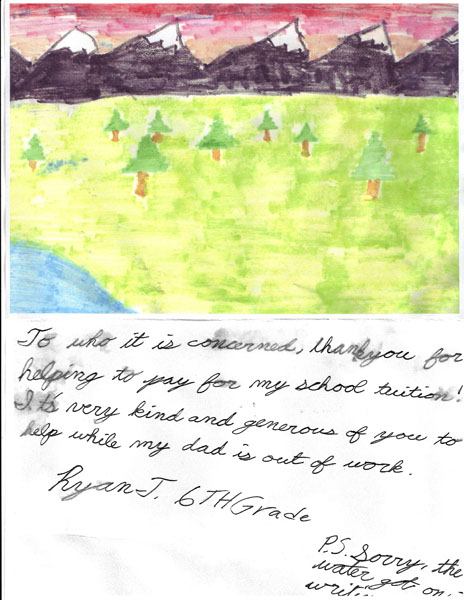 To who it is concerned, thank you for
helping to pay for my school tuition!
It's very kind and generous of you to
help while my dad is out of work.
Ryan J. 6TH Grade
P.S. Sorry, the
water got on